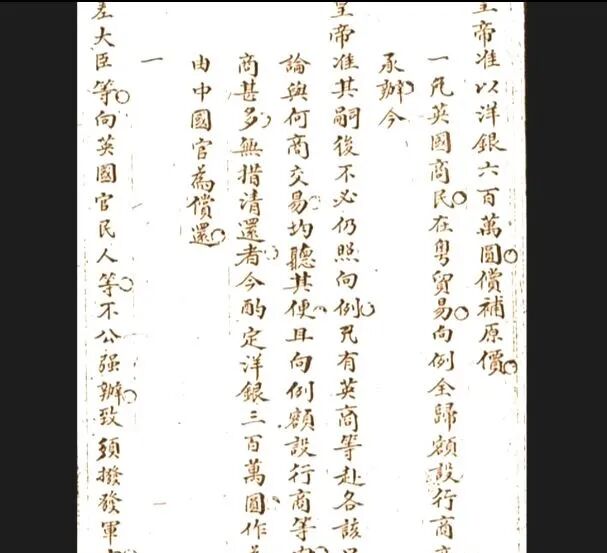 皇帝准以洋銀六百萬圓償補原價
一凡英國商民在粵貿易向例全歸額設行商
承辦今
皇帝准其嗣後不必仍照向例凡有英商等赴各該
論與何商交易均聽其便且向例額設行商等
商甚多無措清還者今酌定洋銀三百萬圓作
由中國官為償還
一
差大臣等向英國官民人等不公強辦致須撥發軍